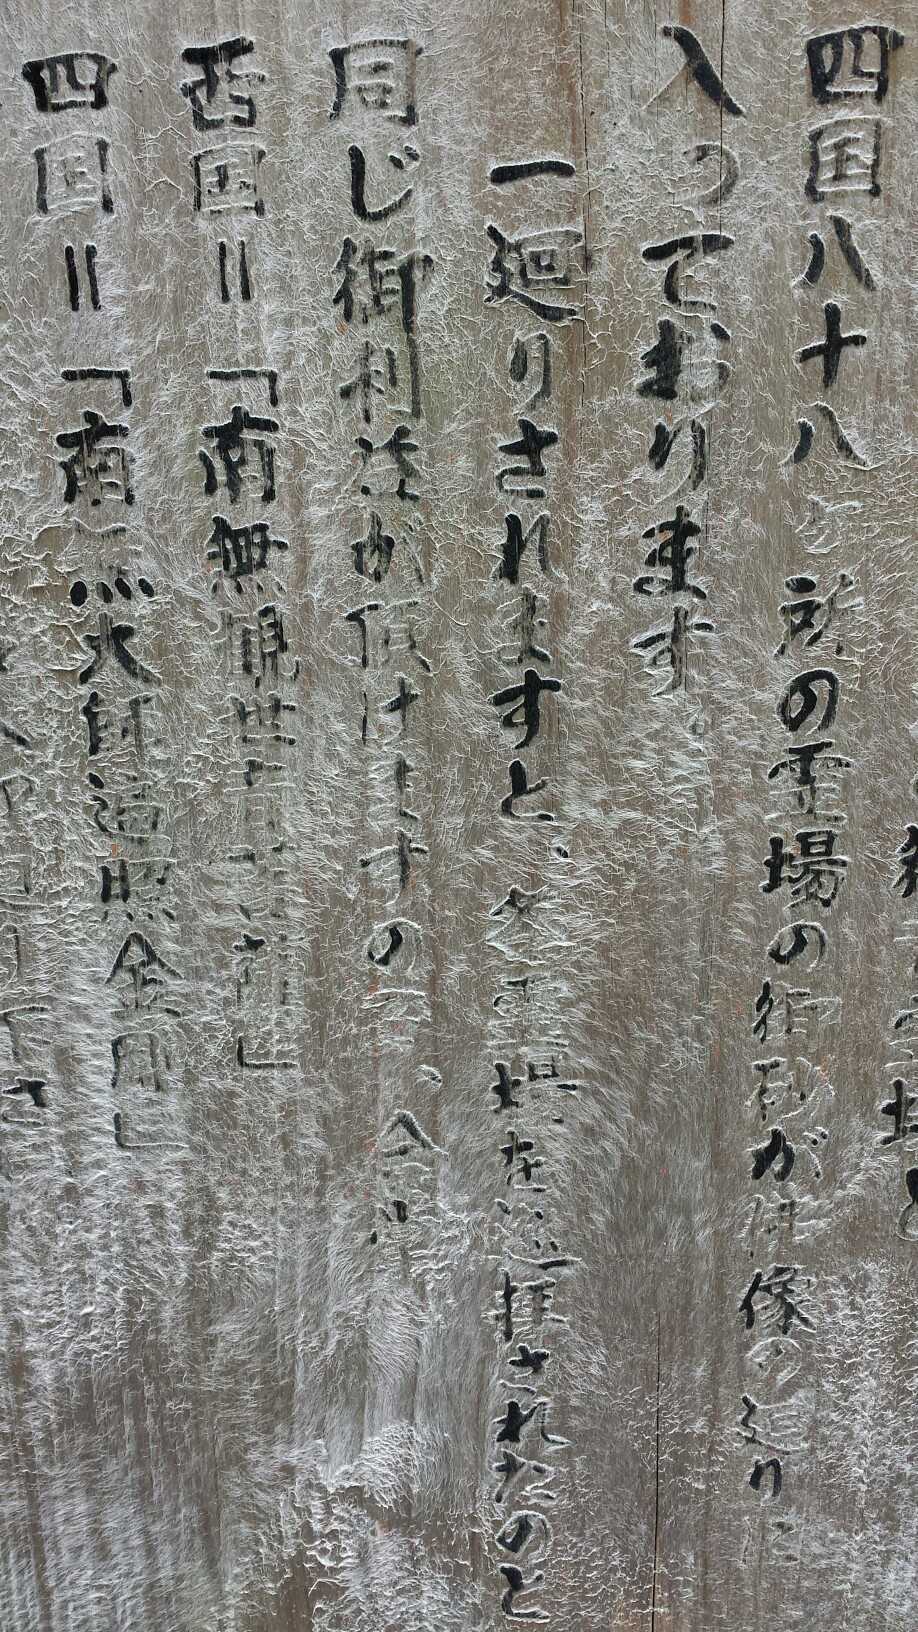 霊場と
四国八十八ヶ所の霊場の御砂が仏像の廻りに
入っております。
一廻りされますと、各霊場を巡拝されたのと
同じ御利益が頂けますので、合
西国＝「南無観世音菩薩」
四国＝「南無大師遍照金剛」